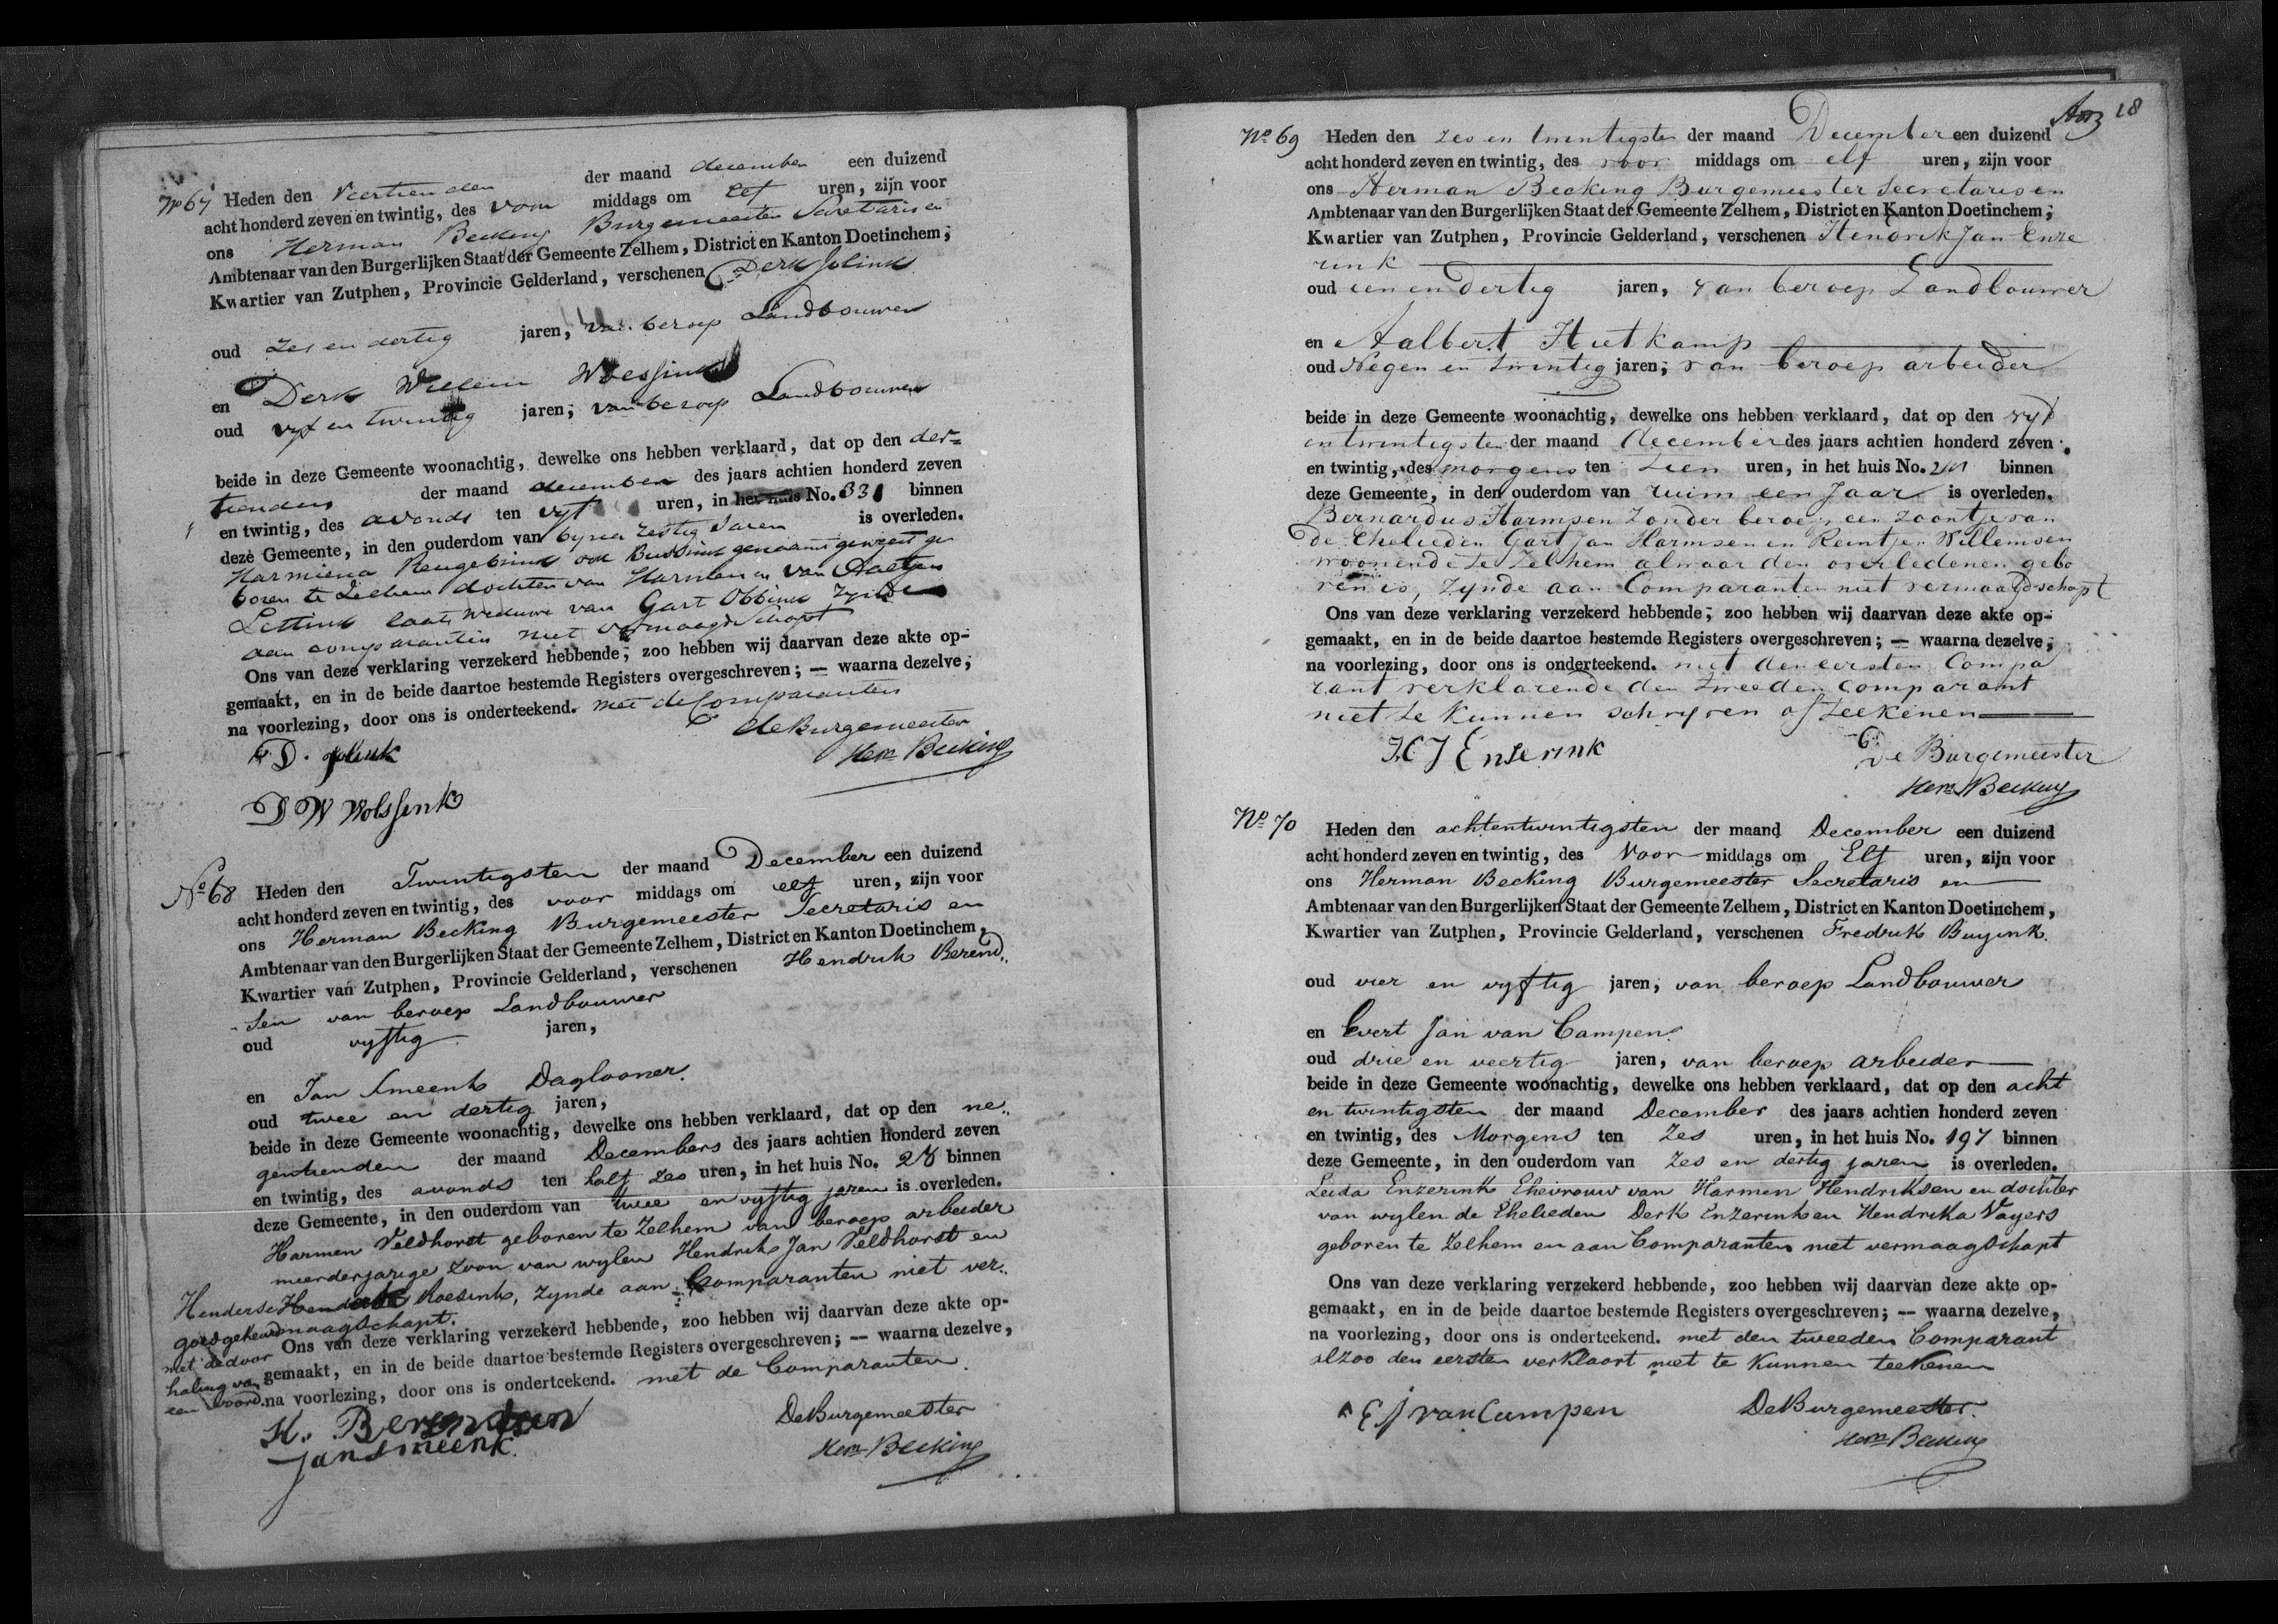 No 67 Heden den Veertienden der maand december een duizend
acht honderd zeven en twintig, des voor middags om Elf uren, zijn voor
ons Herman Becking Burgemeester Secretaris en
Ambtenaar van den Burgerlijken Staat der Gemeente Zelhem, District en Kanton Doetinchem,
Kwartier van Zutphen, Provincie Gelderland, verschenen Derk Jolink
oud Zes en dertig jaren, van beroep Landbouwer
en Derk Willem Wolssink
oud vyf en twintig jaren, van beroep Landbouwer
beide in deze Gemeente woonachtig, dewelke ons hebben verklaard, dat op den der=
tienden der maand december des jaars achtien honderd zeven
en twintig, des avonds ten vyf uren, in het huis No. 331 binnen
deze Gemeente, in den ouderdom van byna zestig Jaren is overleden.
Harmiena Rengebrink ook Bussink genaamt geweest ge
boren te Zelhem dochter van Harmen en van Aaltjen
Lettink laatst Weduwe van Gart Obbink Zynde
aan comparanten niet vermaagdschapt
Ons van deze verklaring verzekerd hebbende, zoo hebben wij daarvan deze akte op-
gemaakt, en in de beide daartoe bestemde Registers overgeschreven; — waarna dezelve,
na voorlezing, door ons is onderteekend. met de Comparanten
de Burgemeester
D. Jolink Herm Becking
D W Wolssink
No 68 Heden den Twintigsten der maand December een duizend
acht honderd zeven en twintig, des voor middags om elf uren, zijn voor
ons Herman Becking Burgemeester Secretaris en
Ambtenaar van den Burgerlijken Staat der Gemeente Zelhem, District en Kanton Doetinchem,
Kwartier van Zutphen, Provincie Gelderland, verschenen Hendrik Berend„
sen van beroep Landbouwer
oud vyftig jaren,
en Jan Smeenk Daglooner.
oud twee en dertig jaren,
beide in deze Gemeente woonachtig, dewelke ons hebben verklaard, dat op den ne„
gentienden der maand Decembers des jaars achtien honderd zeven
en twintig, des avonds ten half zes uren, in het huis No. 28 binnen
deze Gemeente, in den ouderdom van twee en vyftig jaren is overleden.
Harmen Veldhorst geboren te Zelhem van beroep arbeider
meerderjarige zoon van wylen Hendrik Jan Veldhorst en
Henderse Roesink, zynde aan Comparanten niet ver„
maagschapt.
goedgekeurd
met de door
haling van
een woord.
Ons van deze verklaring verzekerd hebbende, zoo hebben wij daarvan deze akte op-
gemaakt, en in de beide daartoe bestemde Registers overgeschreven; — waarna dezelve,
na voorlezing, door ons is onderteekend. met de Comparanten.
H. Berendsen De Burgemeester
Jan Smeenk. Herm Becking
18
No 69 Heden den zes en twintigsten der maand December een duizend
acht honderd zeven en twintig, des voor middags om elf uren, zijn voor
ons Herman Becking Burgemeester Secretaris en
Ambtenaar van den Burgerlijken Staat der Gemeente Zelhem, District en Kanton Doetinchem,
Kwartier van Zutphen, Provincie Gelderland, verschenen Hendrik Jan Enze
rink
oud een en dertig jaren, van beroep Landbouwer
en Aalbert Hietkamp
oud Negen en twintig jaren, van beroep arbeider
beide in deze Gemeente woonachtig, dewelke ons hebben verklaard, dat op den vyf
en twintigsten der maand december des jaars achtien honderd zeven
en twintig, des morgens ten tien uren, in het huis No. binnen
deze Gemeente, in den ouderdom van ruim een Jaar is overleden.
Bernardus Harmsen zonder beroep een zoontje van
de Ehelieden Gart Jan Harmsen en Reintjen Willemsen
woonende te Zelhem alwaar den overledenen gebo
ren is, zynde aan Comparanten niet vermaagdschapt
Ons van deze verklaring verzekerd hebbende, zoo hebben wij daarvan deze akte op-
gemaakt, en in de beide daartoe bestemde Registers overgeschreven; — waarna dezelve,
na voorlezing, door ons is onderteekend. met den eersten Compa
rant verklarende den tweeden comparant
niet te kunnen schryven of teekenen
H J Enserink De Burgemeester
Herm Becking
No 70 Heden den achtentwintigsten der maand December een duizend
acht honderd zeven en twintig, des Voor middags om Elf uren, zijn voor
ons Herman Becking Burgemeester Secretaris en
Ambtenaar van den Burgerlijken Staat der Gemeente Zelhem, District en Kanton Doetinchem,
Kwartier van Zutphen, Provincie Gelderland, verschenen Fredrik Buyink.
oud vier en vyftig jaren, van beroep Landbouwer
en Evert Jan van Campen.
oud drie en veertig jaren, van beroep arbeider
beide in deze Gemeente woonachtig, dewelke ons hebben verklaard, dat op den acht
en twintigsten der maand December des jaars achtien honderd zeven
en twintig, des Morgens ten Zes uren, in het huis No. 197 binnen
deze Gemeente, in den ouderdom van Zes en dertig jaren is overleden.
Leida Enzerink Ehevrouw van Harmen Hendriksen en dochter
van wylen de Ehelieden Derk Enzerink en Hendrika Vayers
geboren te Zelhem en aan Comparanten niet vermaagschapt
Ons van deze verklaring verzekerd hebbende, zoo hebben wij daarvan deze akte op-
gemaakt, en in de beide daartoe bestemde Registers overgeschreven; — waarna dezelve,
na voorlezing, door ons is onderteekend. met den tweeden Comparant
alzoo den eersten verklaart niet te kunnen teekenen
E J van Campen De Burgemeester.
Herm Becking